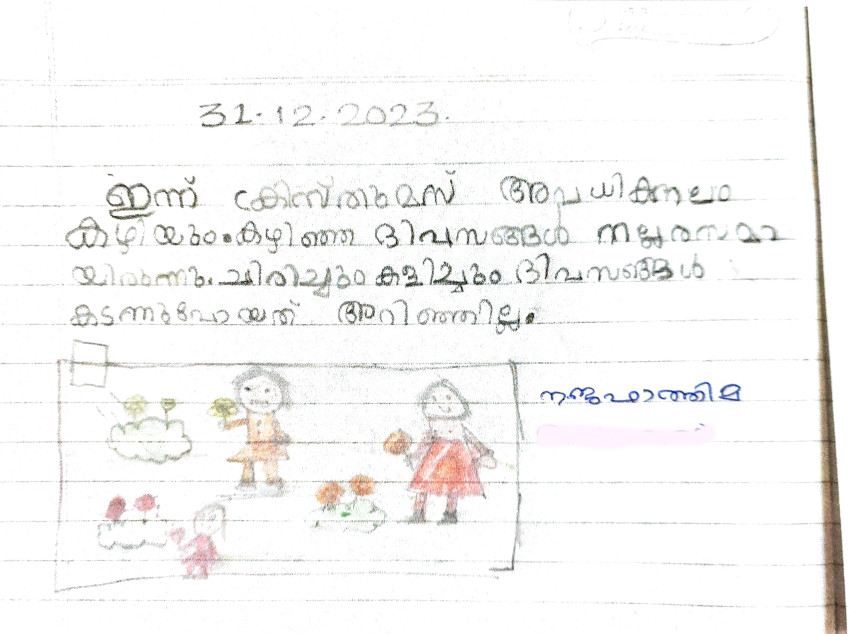 31.12.2023.
ഇന്ന് ക്രിസ്തുമസ് അവധിക്കാലം
കഴിയും. കഴിഞ്ഞ ദിവസങ്ങൾ നല്ലരസമാ
യിരുന്നു. ചിരിച്ചും കളിച്ചും ദിവസങ്ങൾ
കടന്നുപോയത് അറിഞ്ഞില്ല.
ഫാത്തിമ